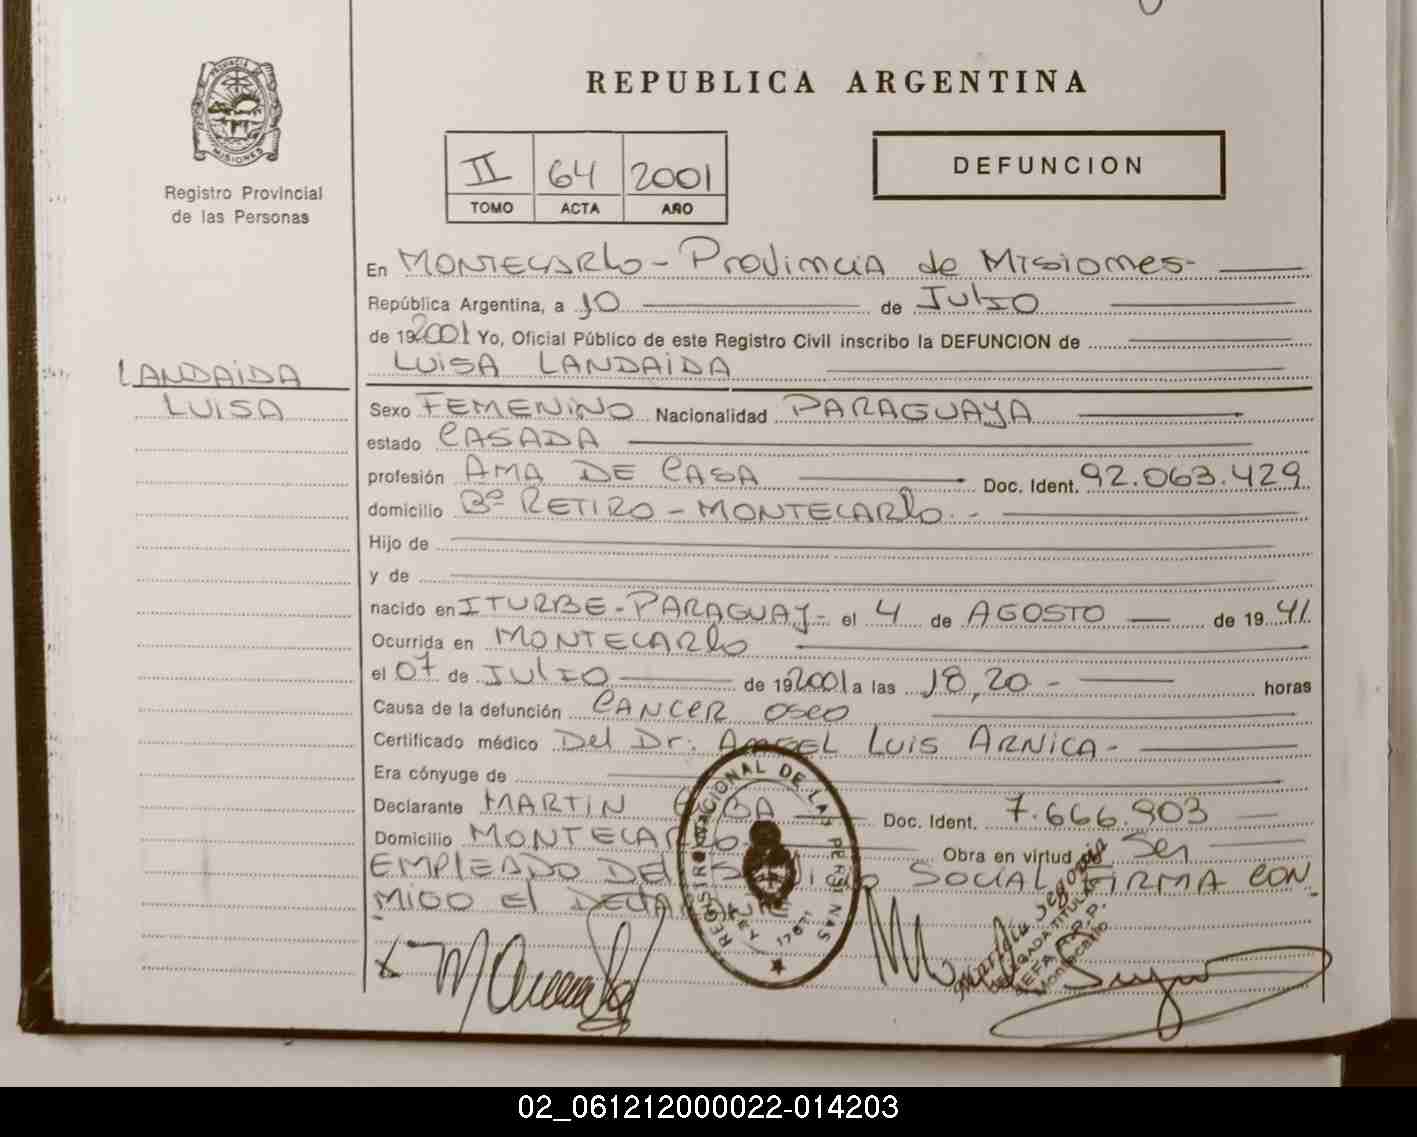 PROVINCIA DE
MISIONES
Registro Provincial
de las Personas
REPUBLICA ARGENTINA
II 64 2001
TOMO ACTA AÑO
DEFUNCION
En MONTECARLO - Provincia de Misiones-
República Argentina, a 10 de Julio
de 192001 Yo, Oficial Público de este Registro Civil inscribo la DEFUNCION de
LUISA LANDAIDA
LANDAIDA
LUISA
Sexo FEMENINO Nacionalidad PARAGUAYA
estado CASADA
profesión AMA DE CASA Doc. Ident. 92.063.429
domicilio Bº RETIRO - MONTECARLO.-
Hijo de
y de
nacido en ITURBE - PARAGUAY - el 4 de AGOSTO de 19 41
Ocurrida en MONTECARLO
el 07 de JULIO de 192001 a las 18,20 - horas
Causa de la defunción CANCER OSEO
Certificado médico Del Dr: ANGEL LUIS ARNICA-
Era cónyuge de
Declarante MARTIN BA Doc. Ident. 7.666.903
Domicilio MONTECARLO Obra en virtud de Ser
EMPLEADO DEL SOCIAL FIRMA CON
MIGO El
REGISTRO NACIONAL DE LAS PERSONAS
LEY 17671
DELEGADA TITULAR
Montecarlo
02_061212000022-014203